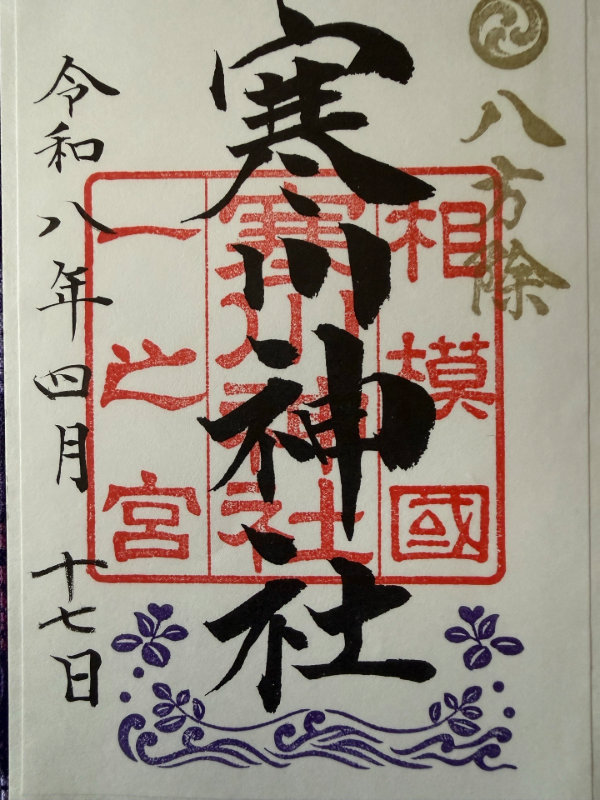 八方除
寒川神社
相模國
寒川神社
一之宮
令和八年四月十七日